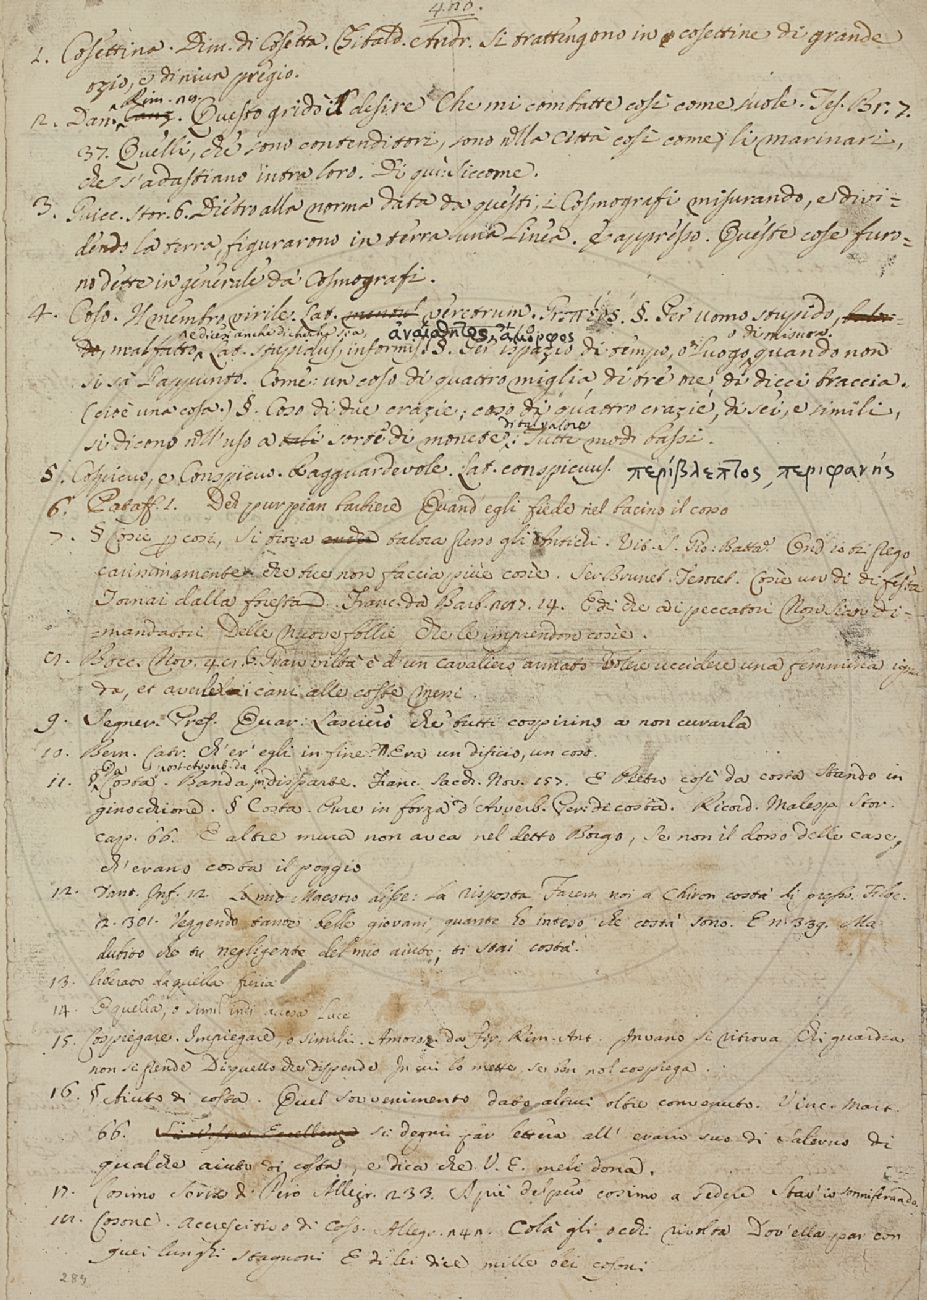 480.
1. Cosettina. Dim. di Cosetta. Gibald. Andr. Si trattengono in cosettine di grande
ozio, e di niun pregio.
Rim. 19.
2. Dan. Canz. Questo gridò il desire Che mi combatte così come suole. Tes. Br. 7.
37. Quelli, che sono contenditori, sono nlla Città così come, li marinari,
che s'adastiano intra loro. Di qui: Siccome.
3. Guicc. Stor. 6. Dietro alla norma data da questi, i Cosmografi misurando, e divi=
dendo la terra, figurarono in terra una Linea. E appresso. Queste cose furo=
no dette in generale da Cosmografi.
4. Coso. Il membro virile. Lat. veretrum. §. Per uomo stupido,
ἀναίσθητος, ἄμορφος
malfatto, Lat. stupidus, informis. §. Per ispazio di tempo, o luogo, quando non
o di misura
si sà l'appunto. Come: un coso di quattro miglia, di tre ore, di dieci braccia.
(cioè una cosa.) §. Coso di due crazie, coso di quattro crazie, di sei, e simili,
di tal valore
si dicono nll'uso a sorte di monete. Tutte modi bassi.
5. Cospicuo, e Conspicuo. Ragguardevole. Lat. conspicuus. περίβλεπτος, περιφανής
6. Pataff. 1. Del purpian barbiere Quand' egli fiede nel bacino il coso
7. § Cosie p così, si trova talora presso gli Antichi. Vit. S. Gio: Batta. Ond' io ti prego
carissimamente, che tue non faccia piue cosie. Ser Brunet. Tesoret. Cosie un dì di festa
Tornai dalla foresta. Franc. da Barb. 217. 14. E di che ai peccatori Non sian di=
=mandatori Delle nuove follie Che le imprendon cosie.
8. Bocc. Nov. 48. 6. Gran viltà è d'un cavaliere armato volere uccidere una femmina ignu
da, et averle i cani alle coste messi.
9. Segner. Pred. Quar: Lasciviò che tutti cospirino a non curarla
10. Bern. Catr. Ch'er' egli in fine? Era un dificio, un coso.
11. § Da Costa. post. avverb. da Banda, in disparte. Franc. Sacch. Nov. 157. E Pietro così da costa stando in
ginocchione. § Costa. Pure in forza d'Avverb. Per di costa. Ricord. Malesp. Stor.
cap. 66. E altre mura non avea nel detto Borgo, se non il dosso delle case,
ch'erano costa il poggio
12. Dant. Inf. 12. Lo mio Maestro disse: La risposta Farem noi a Chiron costà di presso. Filoc.
2. 301. Veggendo tante belle giovani, quante io intesi, che costà sono. E n. 339. Ma
dubito che tu negligente del mio aiuto, ti stai costà.
13. liberato da quella furia
14. E quella, o simil indi accesa luce
15. Cospiegare. Impiegare, o simili. Amoroz. da Fir. Rim. Ant. Invano si ritrova Chi guarda
non si stende Di quello che dispende In cui lo mette, se ben nol cospiega.
16. § Aiuto di costa. Quel sovvenimento dato altrui oltre convenuto. Vinc. Mart.
66. si degni far lettera all' erario suo di Salerno di
qualche aiuto di costa, e dica che V. E. meli dona.
17. Cosimo Sorte di Pero Allegr. 233. A piè del pero cosimo a sedere Stav' io sonniferando
18. Cosone. Accrescitivo di Coso. Allegr. 248. Colà gli occhi rivolta Dov' ella par con
quei lunghi stagnoni E di lei dice mille bei cosoni
285